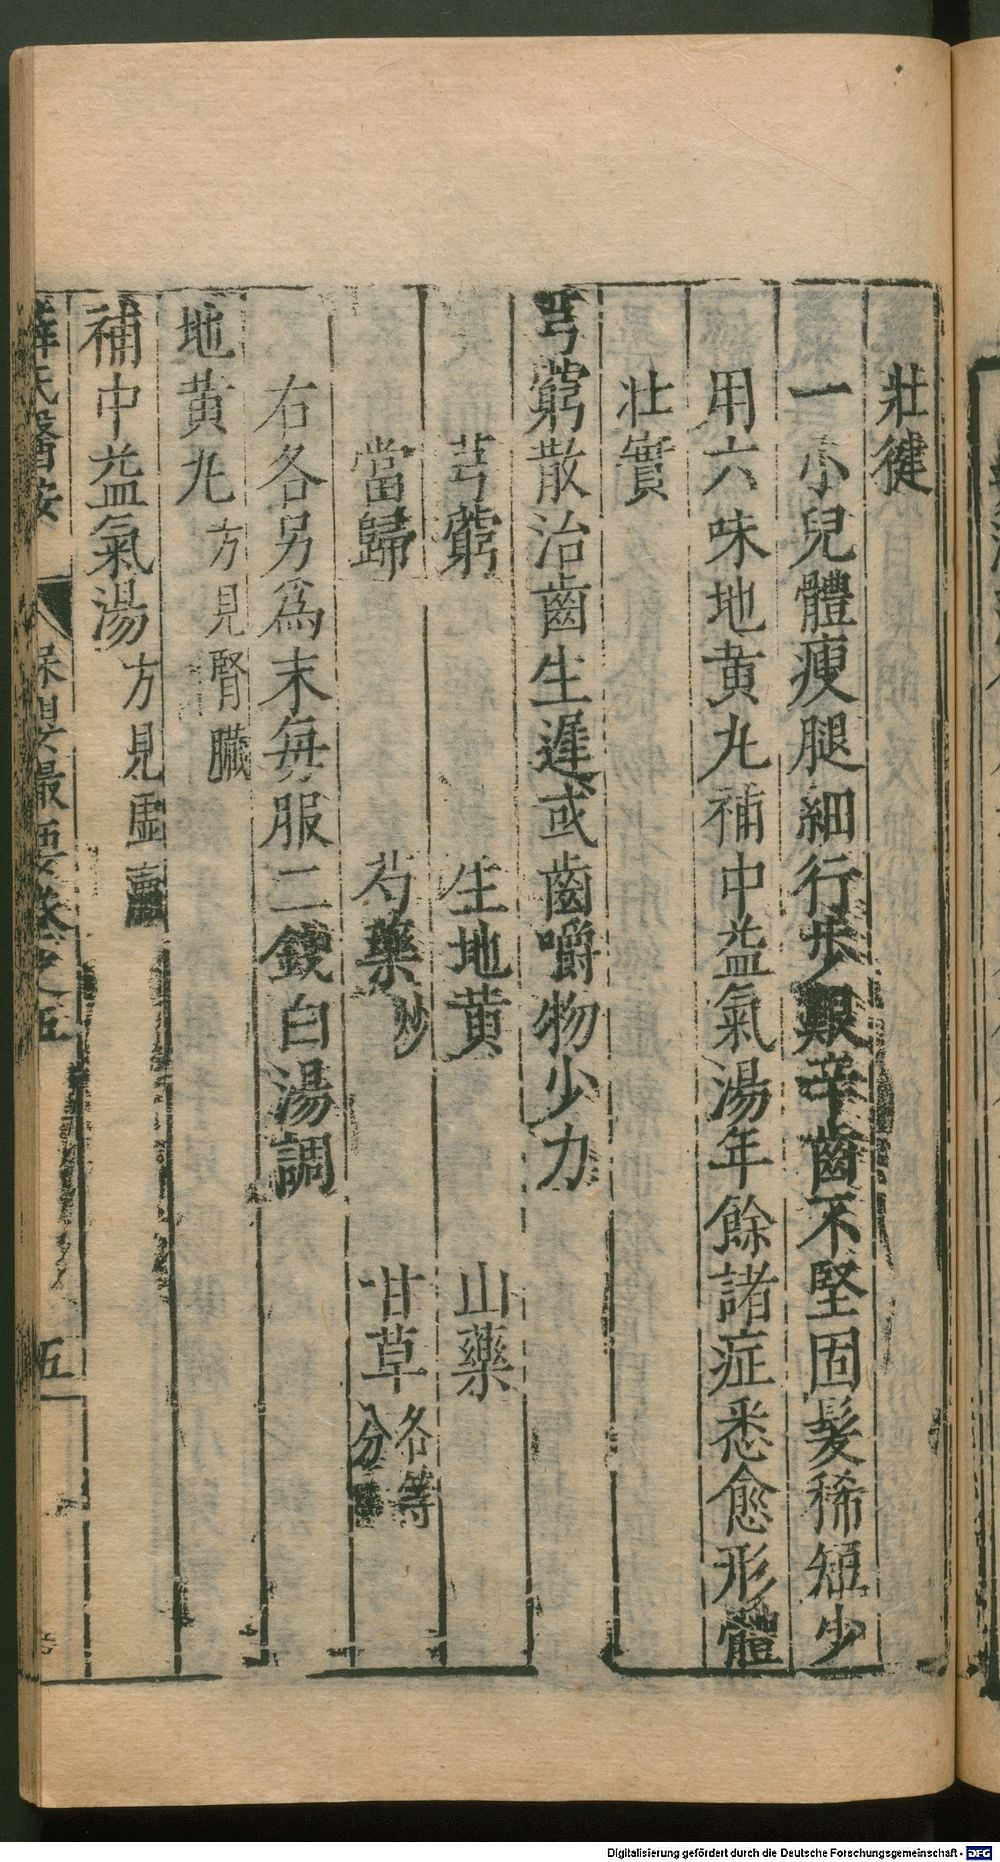 壯健
一小兒體瘦腿細行步艱辛齒不堅固髮稀短少
用六味地黃丸補中益氣湯年餘諸症悉愈形體
壯實
芎藭散治齒生遲或齒嚼物少力
芎藭 生地黃 山藥
當歸 芍藥炒 甘草各等分
右各另爲末每服二錢白湯調
地黃丸方見腎臟
補中益氣湯方見虛
薛氏醫按 保嬰撮要卷之五 五
Digitalisierung gefördert durch die Deutsche Forschungsgemeinschaft - DFG